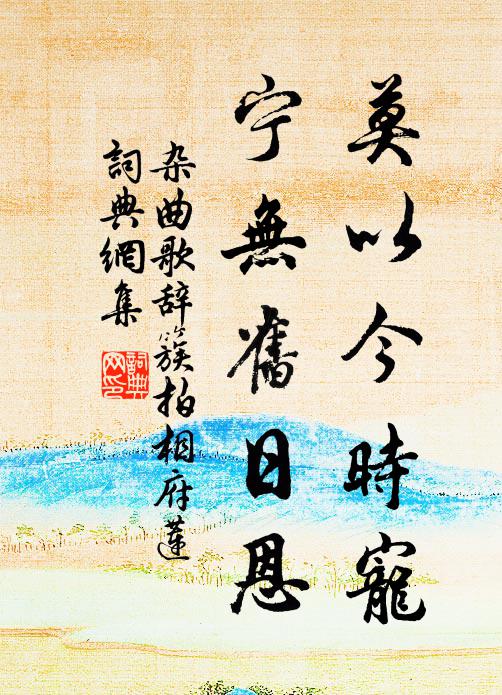 莫以今時寵
宁無舊日恩
杂曲歌辞簇拍相府蓮
詞典網集
詞典
网印